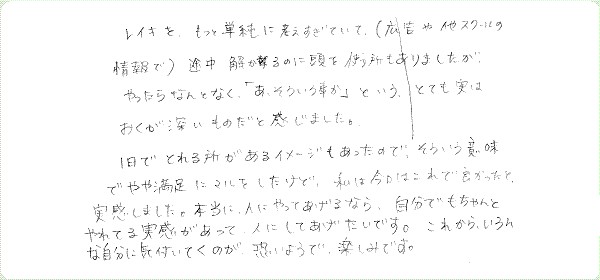 レイキを、もっと単純に考えすぎていて、(広告や他スクールの
情報で) 途中 解かるのに頭を使う所もありましたが、
やったらなんとなく、「あ、そういう事か」という、とても実は
おくが深いものだと感じました。
1日でとれる所があるイメージもあったので、そういう意味
でやや満足にマルをしたけど、私は今日はこれで良かったと、
実感しました。本当に、人にやってあげるなら、自分でもちゃんと
やれてる実感があって、人にしてあげたいです。これから、いろん
な自分に気付いてくのが、恐いようで、楽しみです。